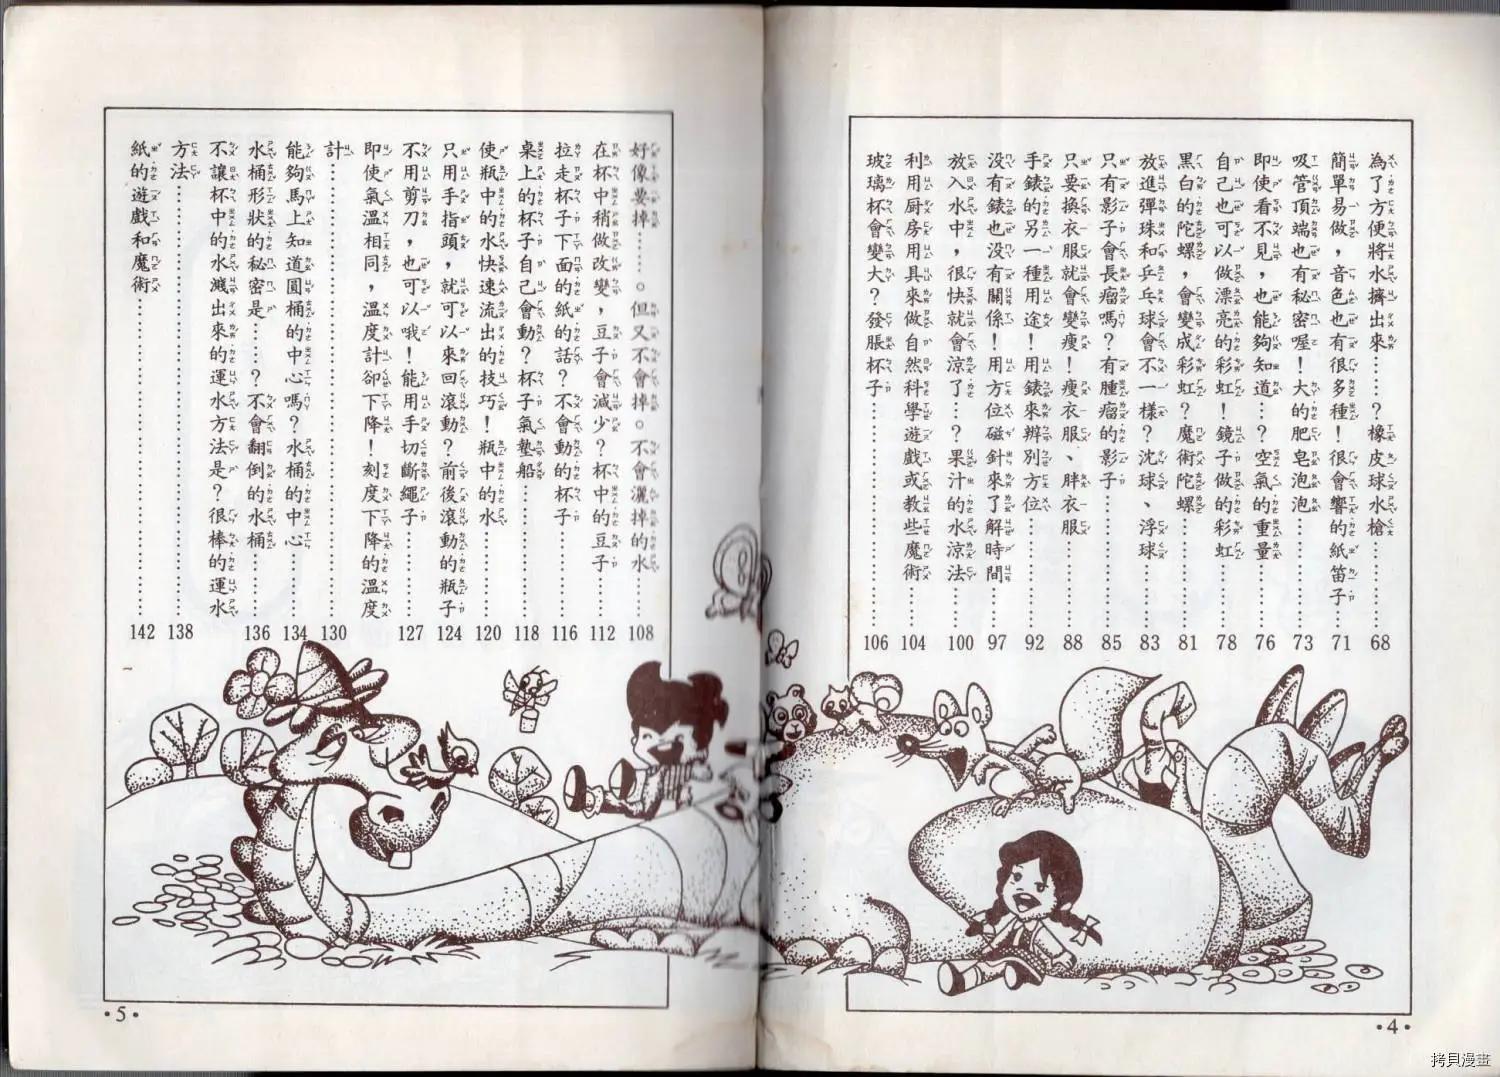 為了方便將水擠出來……?橡皮球水槍……68
簡單易做,音色也有很多種!很會響的紙笛子……71
吸管頂端也有秘密喔!大的肥皂泡泡……73
即使看不見,也能夠知道…?空氣的重量……76
自己也可以做漂亮的彩虹!鏡子做的彩虹……78
黑白的陀螺,會變成彩虹?魔術陀螺……81
放進彈珠和乒乓球會不一樣?沈球、浮球……83
只有影子會長瘤嗎?有腫瘤的影子……85
只要換衣服就會變瘦!瘦衣服、胖衣服……88
手錶的另一種用途!用錶來辨別方位……92
沒有錶也沒有關係!用方位磁針來了解時間……97
放入水中,很快就會涼了?果汁的水涼法……100
利用廚房用具來做自然科學遊戲或教些魔術……104
玻璃杯會變大?發脹杯子……106
•4•
好像要掉……。但又不會掉。不會灑掉的水……108
在杯中稍做改變,豆子會減少?杯中的豆子……112
拉走杯子下面的紙的話?不會動的杯子……116
桌上的杯子自己會動?杯子氣墊船……118
使瓶中的水快速流出的技巧!瓶中的水……120
只用手指頭,就可以來回滾動?前後滾動的瓶子……124
不用剪刀,也可以哦!能用手切斷繩子……127
即使氣溫相同,溫度計卻下降!刻度下降的溫度
計……130
能夠馬上知道圓桶的中心嗎?水桶的中心……134
水桶形狀的秘密是……?不會翻倒的水桶……136
不讓杯中的水濺出來的運水方法是?很棒的運水
方法……138
紙的遊戲和魔術……142
•5•
拷貝漫畫